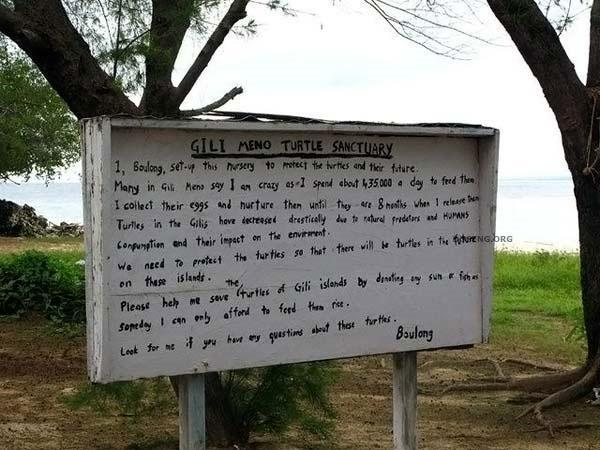 GILI MENO TURTLE SANCTUARY
I, Boulong, set-up this nursery to protect the turtles and their future.
Many in Gili Meno say I am crazy as I spend about 435.000 a day to feed them
I collect their eggs and nurture them until they are 8 months when I release them
Turtles in the Gilis have decreased drastically due to natural predators and HUMANS
Consumption and their impact on the enviroment.
We need to protect the turtles so that there will be turtles in the future
on these islands.
Please help me save the turtles of Gili islands by donating any sum or fish as
someday I can only afford to feed them rice.
Look for me if you have any questions about these turtles.
Boulong